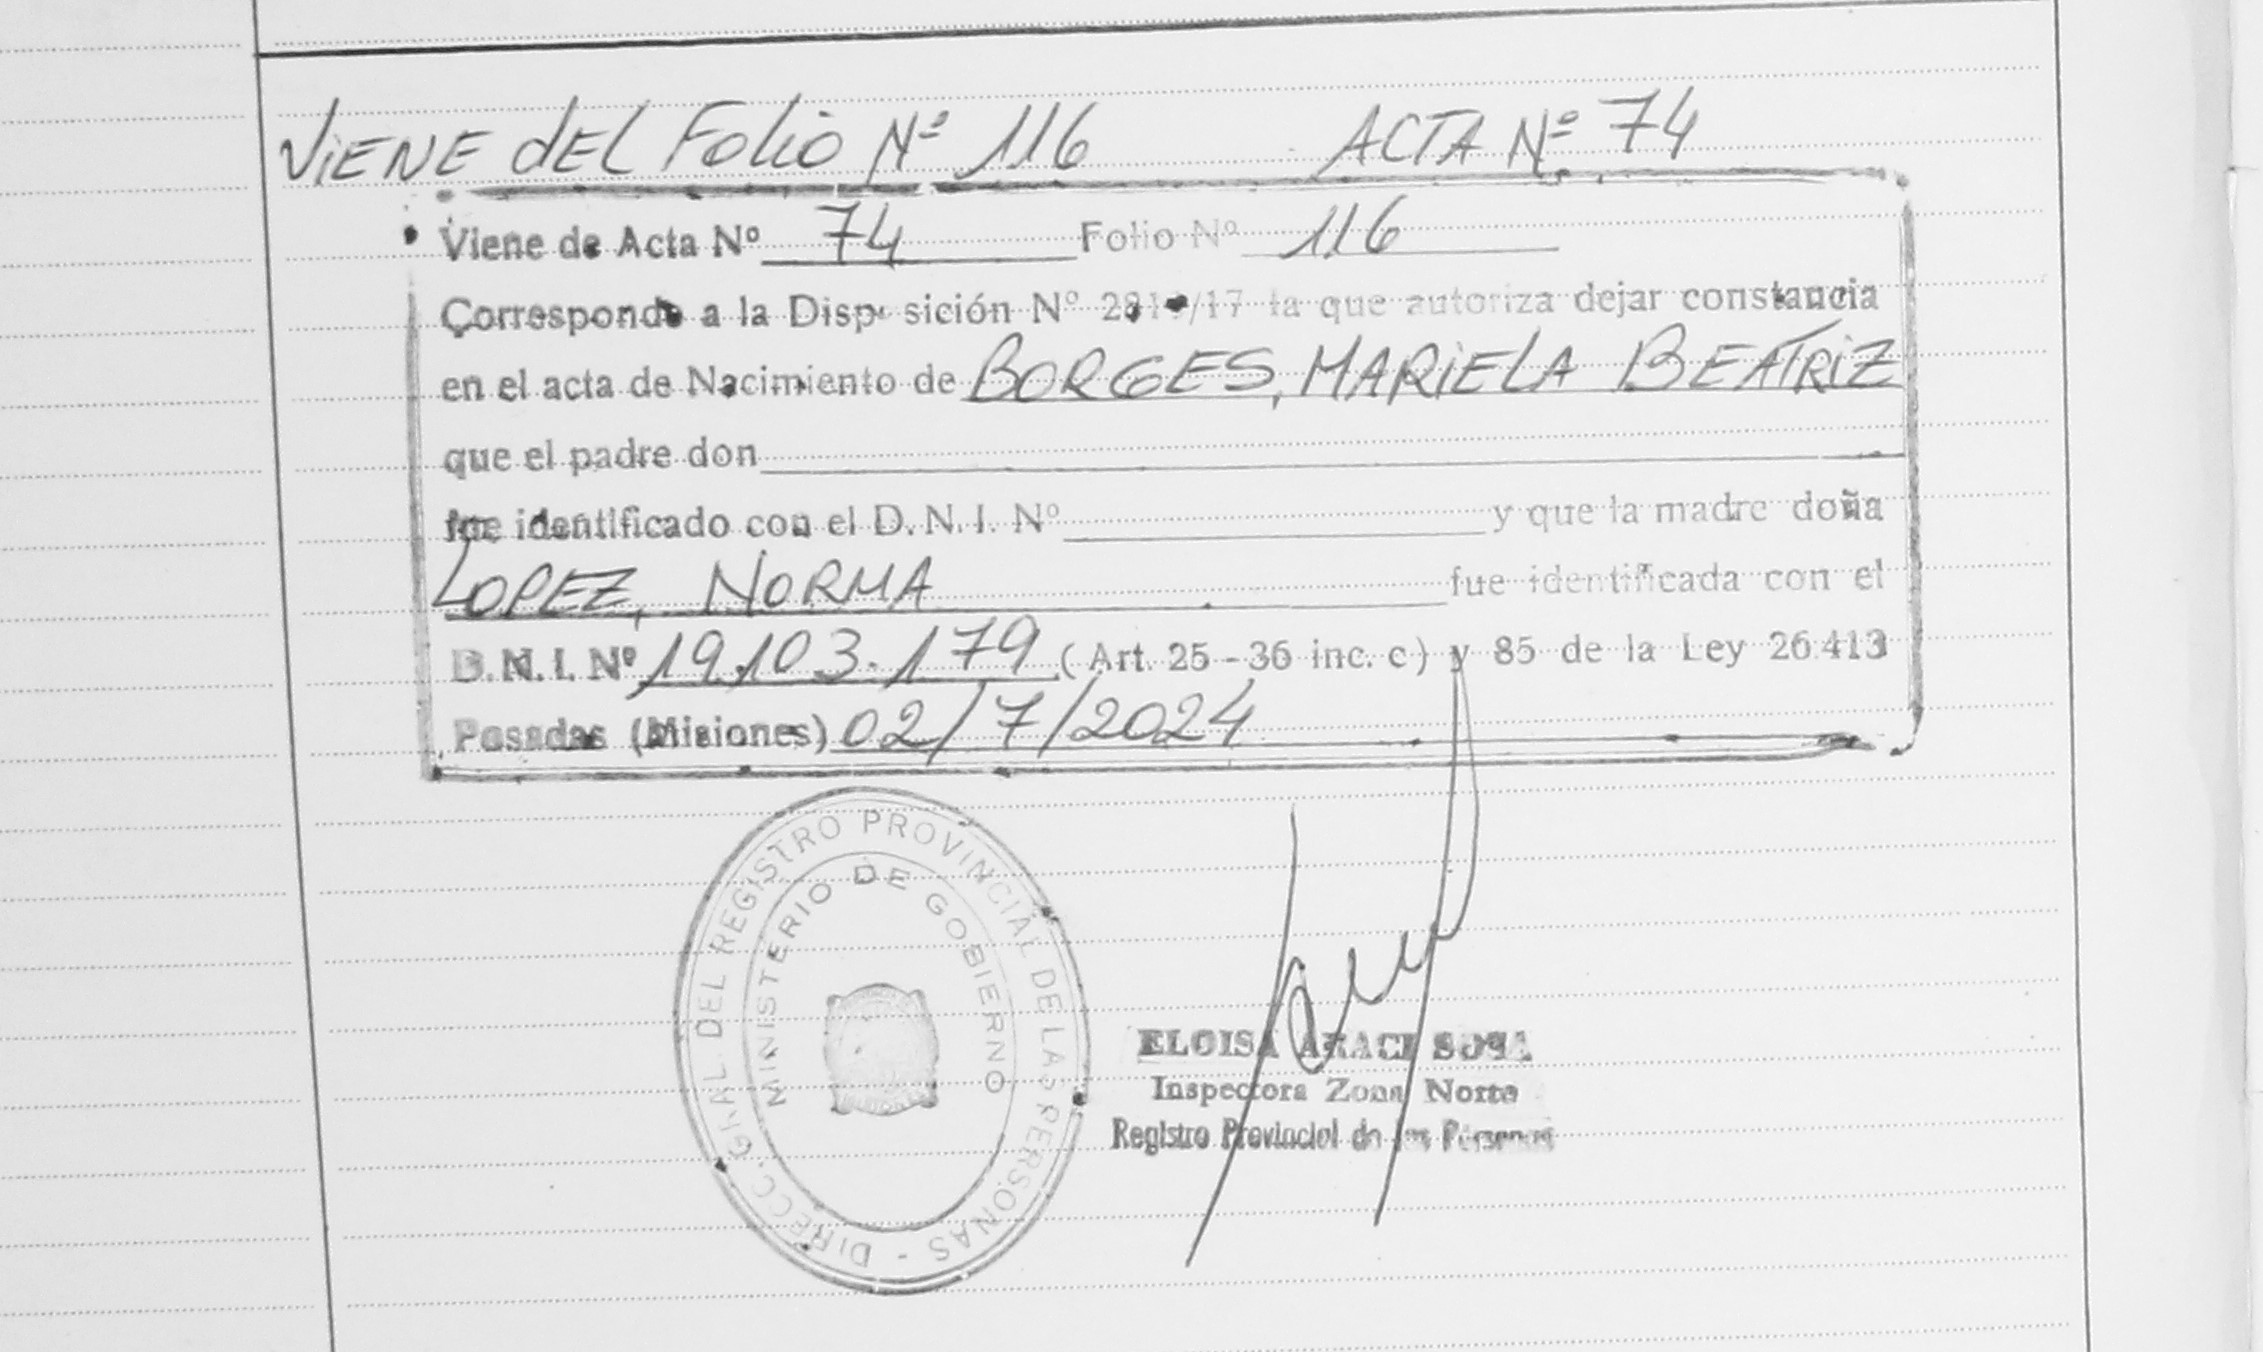 ViENE dEL Folio Nº 116 ACTA Nº 74
Viene de Acta Nº 74 Folio Nº 116
Corresponde a la Disposición Nº la que autoriza dejar constancia
en el acta de Nacimiento de BORGES, MARiELA BEATRiZ
que el padre don
fue identificado con el D.N.I. Nº y que la madre doña
LOPEZ, NORMA fue identificada con el
D.N.I. Nº 19.103.179 (Art. 25 - 36 inc. c) y 85 de la Ley 26.413
Posadas (Misiones) 02/7/2024
DIRECC. GRAL. DEL REGISTRO PROVINCIAL DE LAS PERSONAS -
MINISTERIO DE GOBIERNO
ELOISA ARACI SOSA
Inspectora Zona Norte
Registro Provincial de las Personas